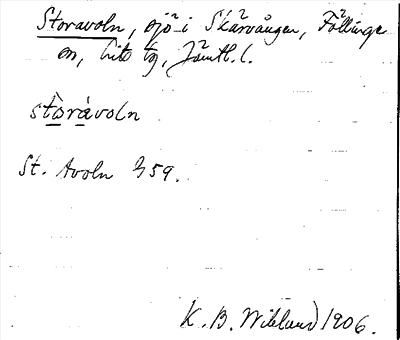 Storavoln, sjö i Skärvången, Föllinge
sn, Lits tg, Jämtl. l.
stòrávoln
St. Avoln 359.
K. B. Wiklund 1906.